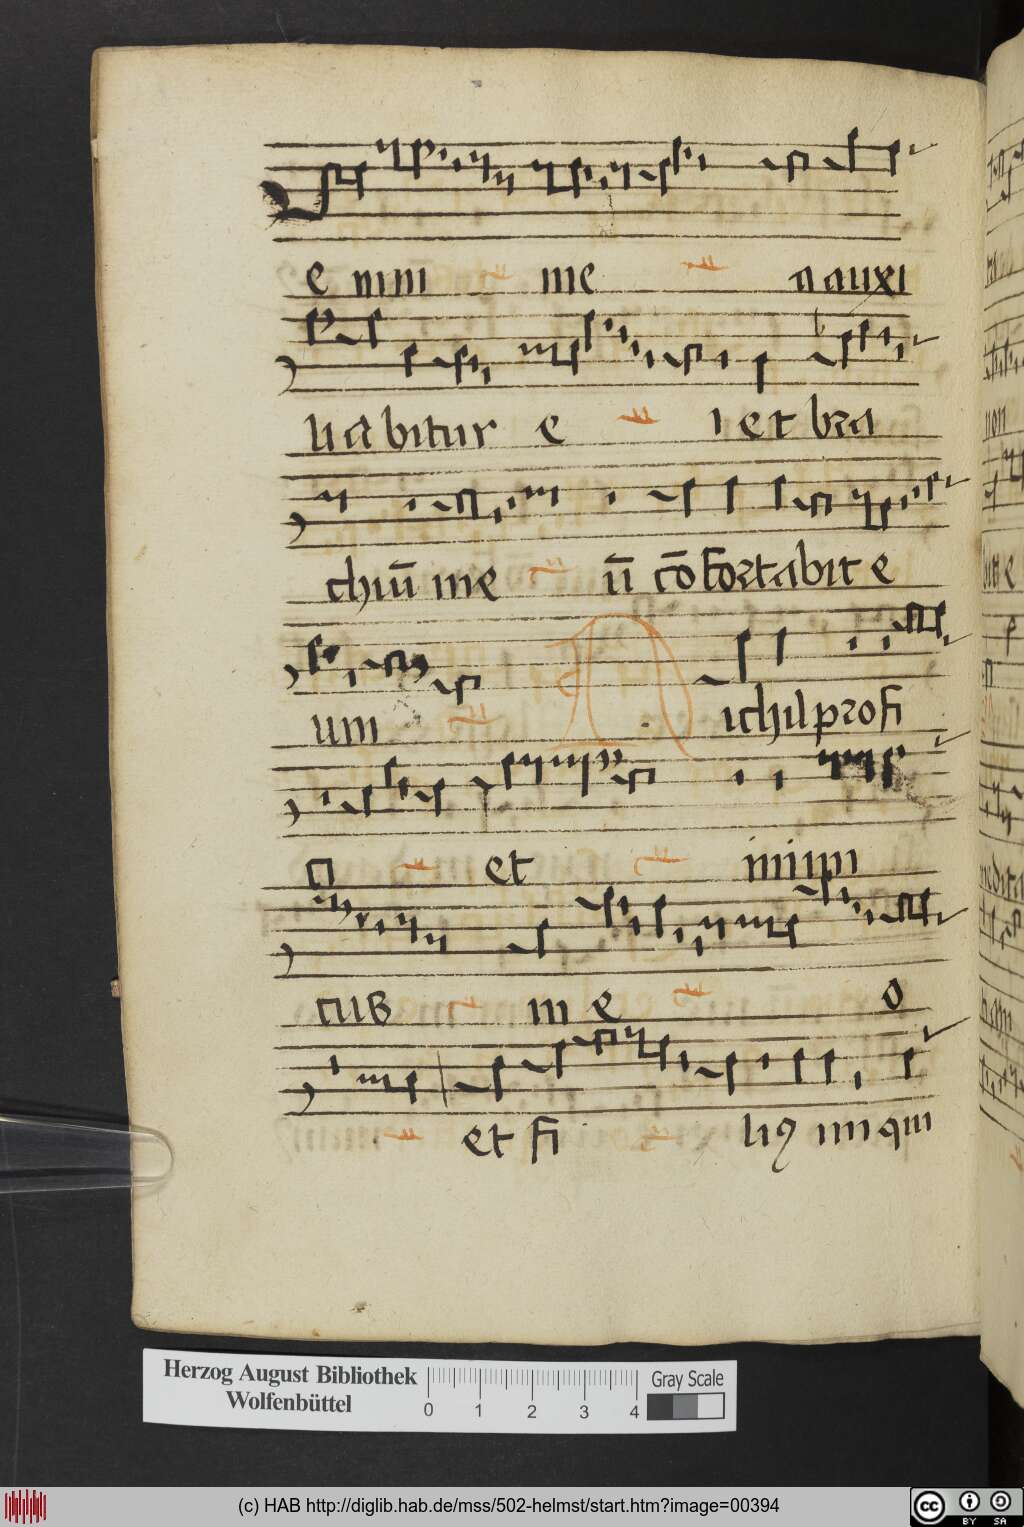 e nim me a auxi
liabitur e i et bra
chiū me ū cōfortabit e
um Nichil profi
ci et inimi
cus in e o
et fi liꝯ iniqui
Herzog August Bibliothek
Wolfenbüttel
0 1 2 3 4
Gray Scale
(c) HAB http://diglib.hab.de/mss/502-helmst/start.htm?image=00394
cc BY SA